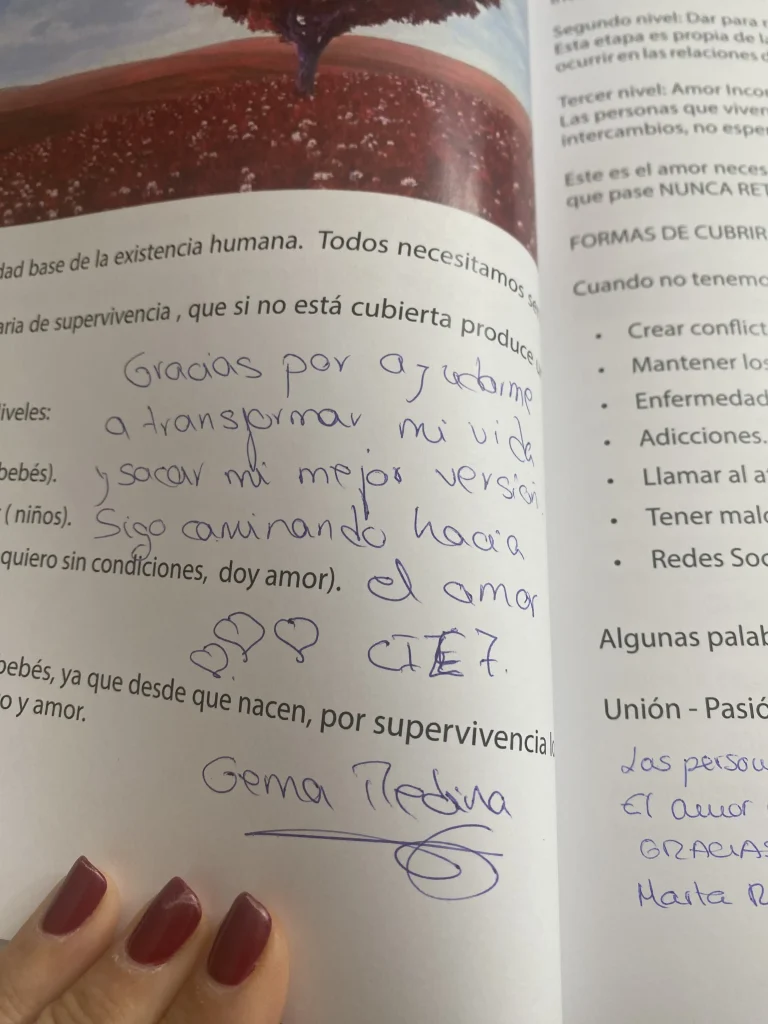 dad base de la existencia humana. Todos necesitamos se
aria de supervivencia , que si no está cubierta produce
Gracias por ayudarme
a transformar mi vida
iveles:
y sacar mi mejor version
bebés).
Sigo caminando hacia
( niños).
el amor
quiero sin condiciones, doy amor).
CIE7.
bebés, ya que desde que nacen, por supervivencia l
o y amor.
Gema Medina
Segundo nivel: Dar para
Esta etapa es propia de l
ocurrir en las relaciones d
Tercer nivel: Amor Incon
Las personas que viven
intercambios, no esper
Este es el amor neces
que pase NUNCA RET
FORMAS DE CUBRIR
Cuando no tenemo
• Crear conflict
• Mantener los
• Enfermedad
• Adicciones.
• Llamar al a
• Tener malo
• Redes Soc
Algunas palab
Unión - Pasió
Las person
El amor
GRACIAS
Marta R